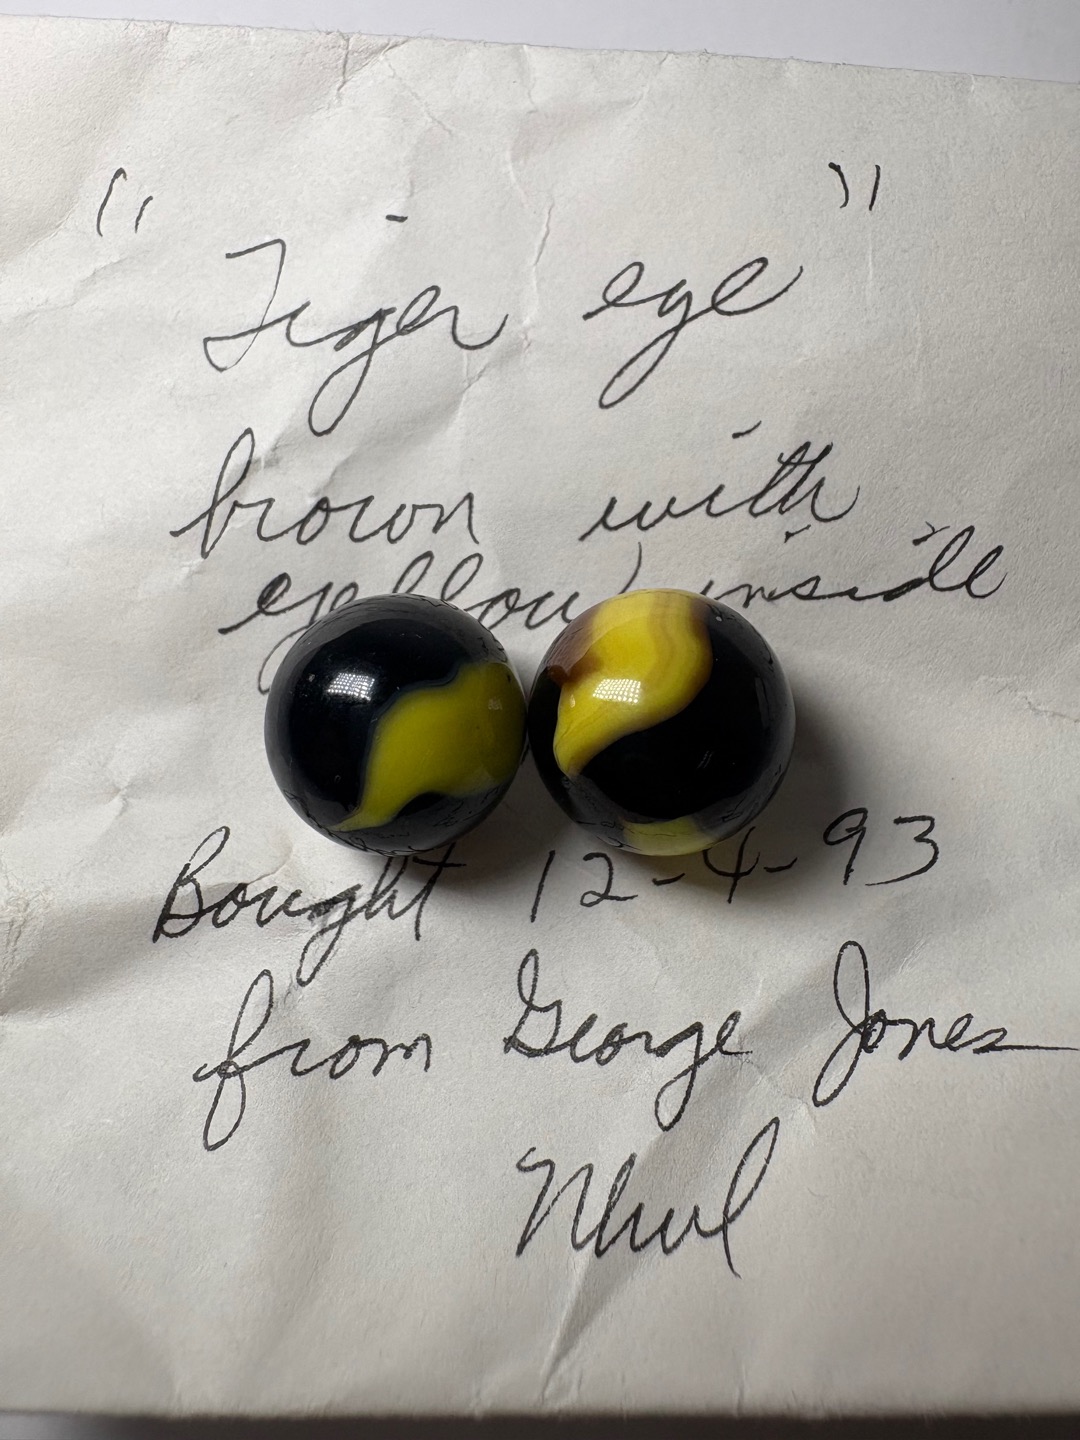 "Tiger eye"
brown with
yellow inside
Bought 12-4-93
from George Jones